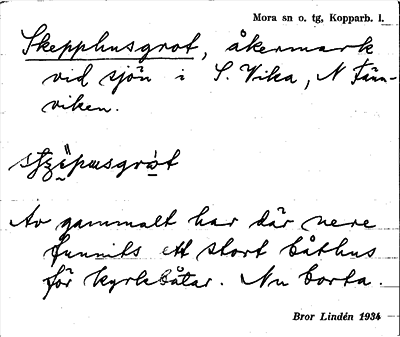 Mora sn o. tg, Kopparb. l.
Skepphusgrot, åkermark
vid sjön i S. Vika, N Fän-
viken.
Av gammalt har där nere
funnits ett stort båthus
för kyrkbåtar. Nu borta.
Bror Lindén 1934